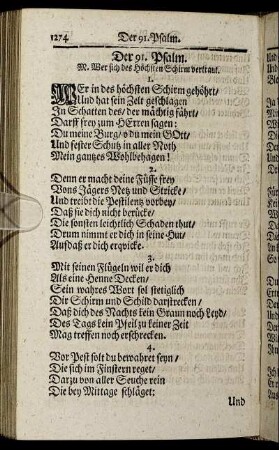 1274 Der 91. Psalm.
Der 91. Psalm.
M. Wer sich des Höchsten Schirm vertraut.
1.
WEr in des höchsten Schirm gehöhrt/
Und hat sein Zelt geschlagen
In Schatten des/ der mächtig fährt/
Darff frey zum HErren sagen:
Du meine Burg/ o du mein GOtt/
Und fester Schutz in aller Noth
Mein gantzes Wohlbehagen!
2.
Denn er macht deine Füsse frey
Vons Jägers Netz und Stricke/
Und treibt die Pestilentz vorbey/
Daß sie dich nicht berücke/
Die sonsten leichtlich Schaden thut/
Drum nimmt er dich in seine Hut/
Aufdaß er dich erqvicke.
3.
Mit seinen Flügeln wil er dich
Als eine Henne Decken/
Sein wahres Wort sol stetiglich
Dir Schirm und Schild darstrecken/
Daß dich des Nachts kein Graun noch Leyd/
Des Tags kein Pfeil zu keiner Zeit
Mag treffen noch erschrecken.
4.
Vor Pest solt du bewahret seyn/
Die sich im Finstern reget/
Darzu von aller Seuche rein
Die bey Mittage schläget:
Und